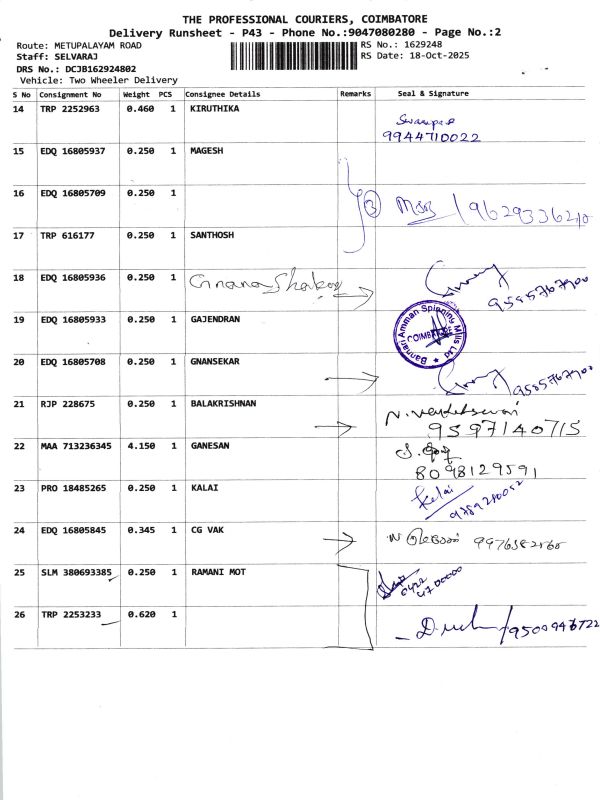 THE PROFESSIONAL COURIERS, COIMBATORE
Delivery Runsheet - P43 - Phone No.:9047080280 - Page No.:2
Route: METUPALAYAM ROAD RS No.: 1629248
Staff: SELVARAJ RS Date: 18-Oct-2025
DRS No.: DCJB162924802
Vehicle: Two Wheeler Delivery
S No Consignment No Weight PCS Consignee Details Remarks Seal & Signature
14 TRP 2252963 0.460 1 KIRUTHIKA
9944710022
15 EDQ 16805937 0.250 1 MAGESH
16 EDQ 16805709 0.250 1 3
17 TRP 616177 0.250 1 SANTHOSH
18 EDQ 16805936 0.250 1
19 EDQ 16805933 0.250 1 GAJENDRAN
Bannari Amman Spinning Mills Ltd
COIMBATORE
20 EDQ 16805708 0.250 1 GNANSEKAR
21 RJP 228675 0.250 1 BALAKRISHNAN
9597140715
22 MAA 713236345 4.150 1 GANESAN
8098129591
23 PRO 18485265 0.250 1 KALAI
Kalai
24 EDQ 16805845 0.345 1 CG VAK
25 SLM 380693385 0.250 1 RAMANI MOT
0422
4700000
26 TRP 2253233 0.620 1